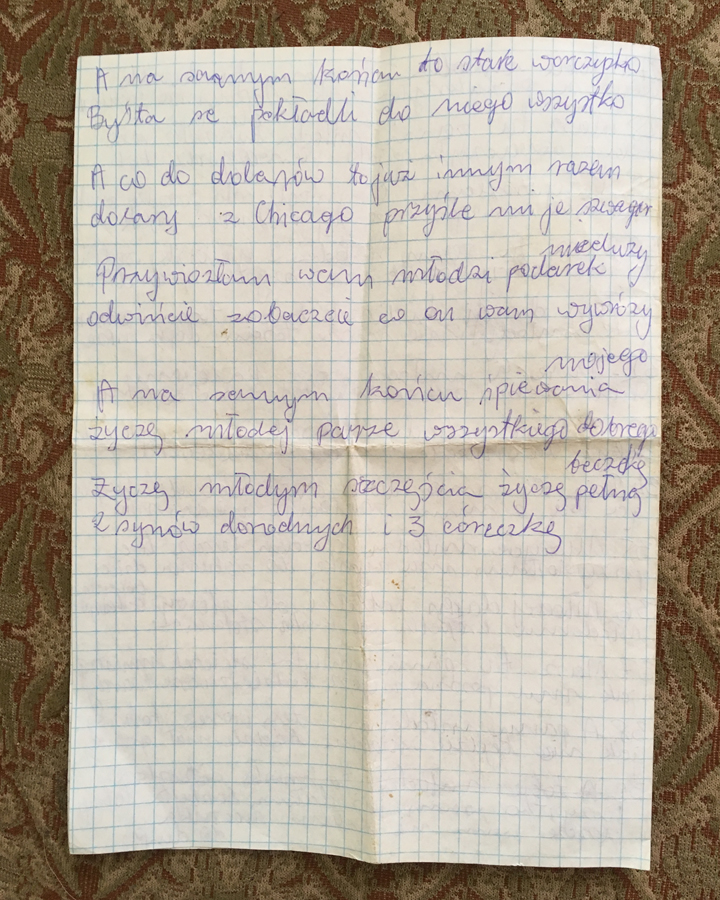 A na samym końcu to stare worczysko
Byśta se pokładli do niego wszystko
A co do dolarów to już innym razem
dolary z Chicago przyśle mi je szwagier
Przywiozłam wam młodzi podarek nieduży
odwińcie zobaczcie co on wam wywróży
A na samym końcu śpiewania mojego
życzę młodej parze wszystkiego dobrego
Życzę młodym szczęścia życzę pełną beczkę
2 synów dorodnych i 3 córeczkę